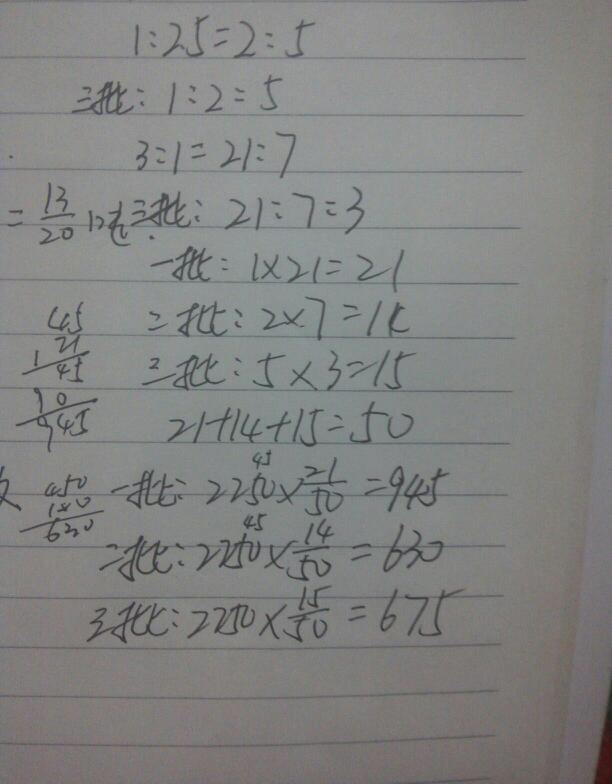 1:2.5=2:5
三批:1:2=5
3:1=21:7
=13/20 三批:21:7=3
一批:1×21=21
45 二批:2×7=14
21 45 三批:5×3=15
90 945 21+14+15=50
一批:2250×21/50=945 45
450 180 630 二批:2250×14/50=630 45
三批:2250×15/50=675